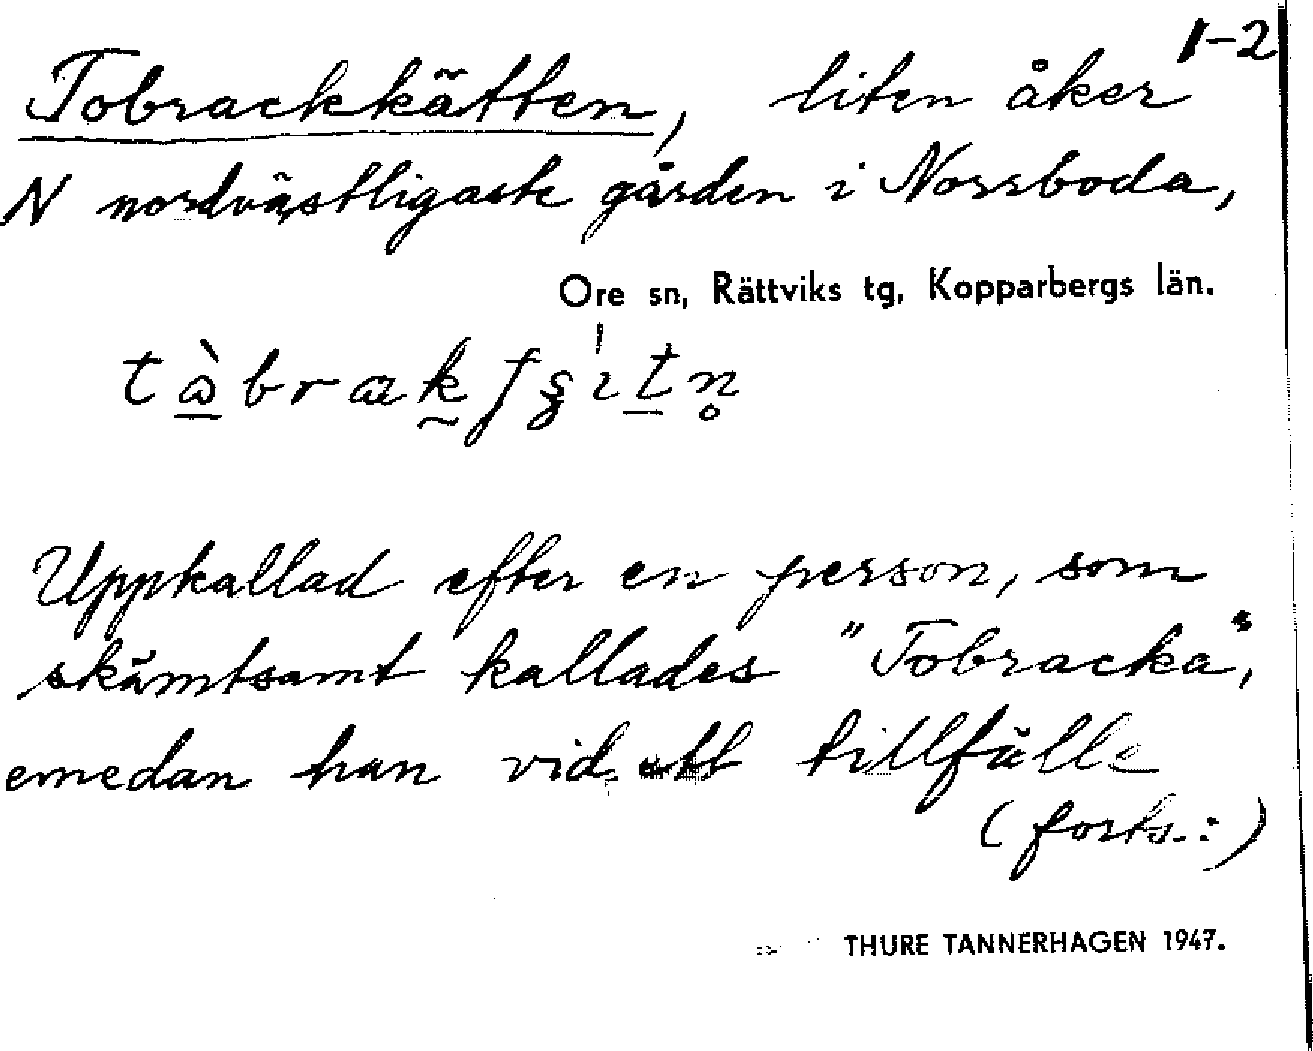 1-2
Tobrackkätten, liten åker
N nordvästligaste gården i Norrboda,
Ore sn, Rättviks tg, Kopparbergs län.
Uppkallad efter en person, som
skämtsamt kallades "Tobracka",
emedan han vid ett tillfälle
(forts.:)
THURE TANNERHAGEN 1947.